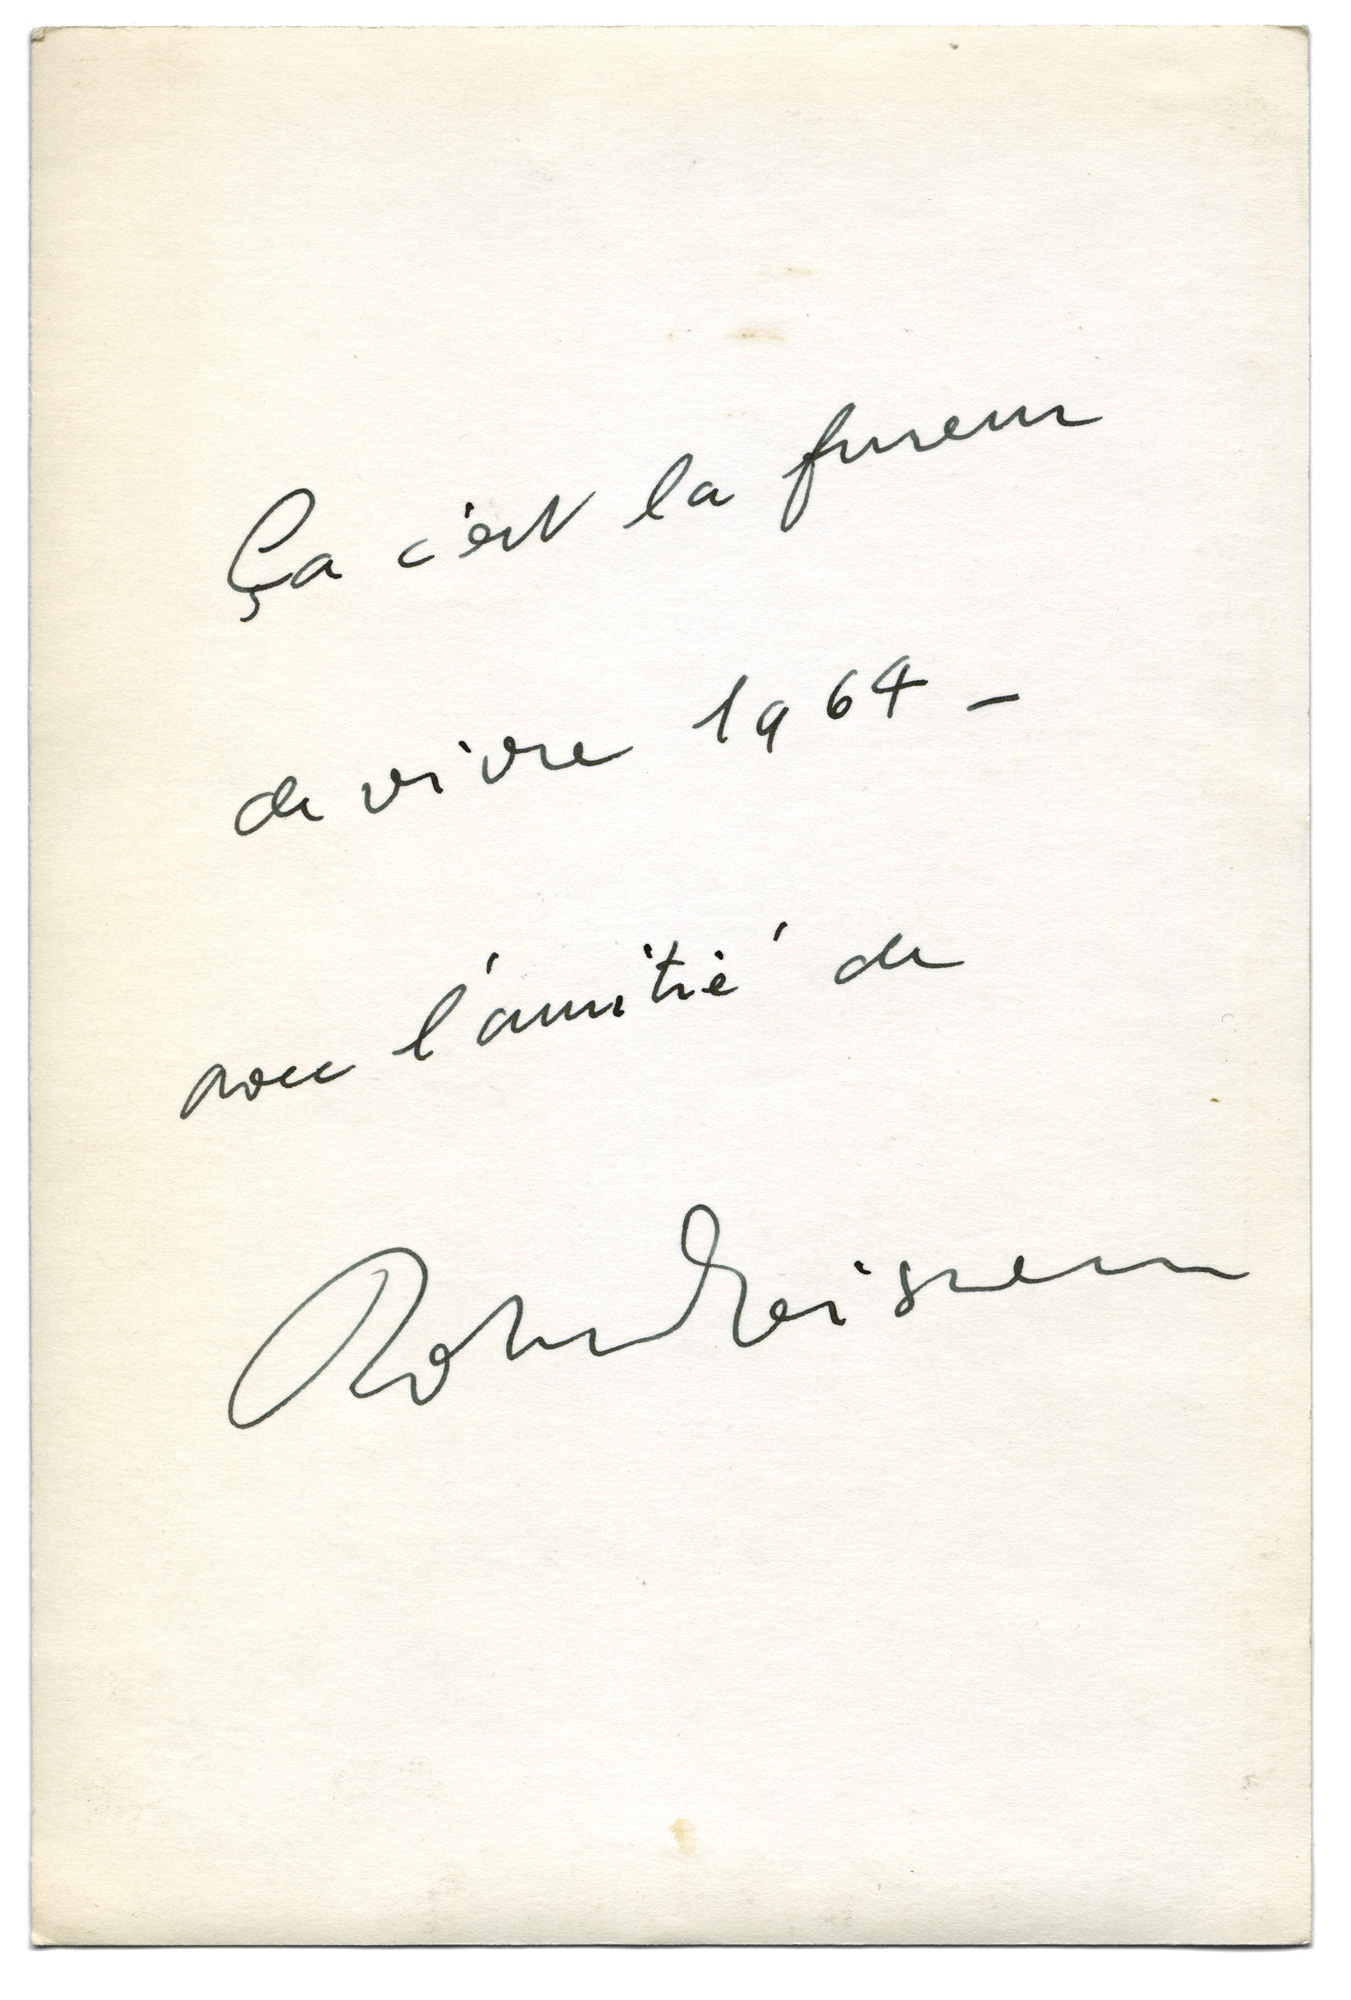 Ça c'est la fureur
de vivre 1964 -
avec l'amitié de